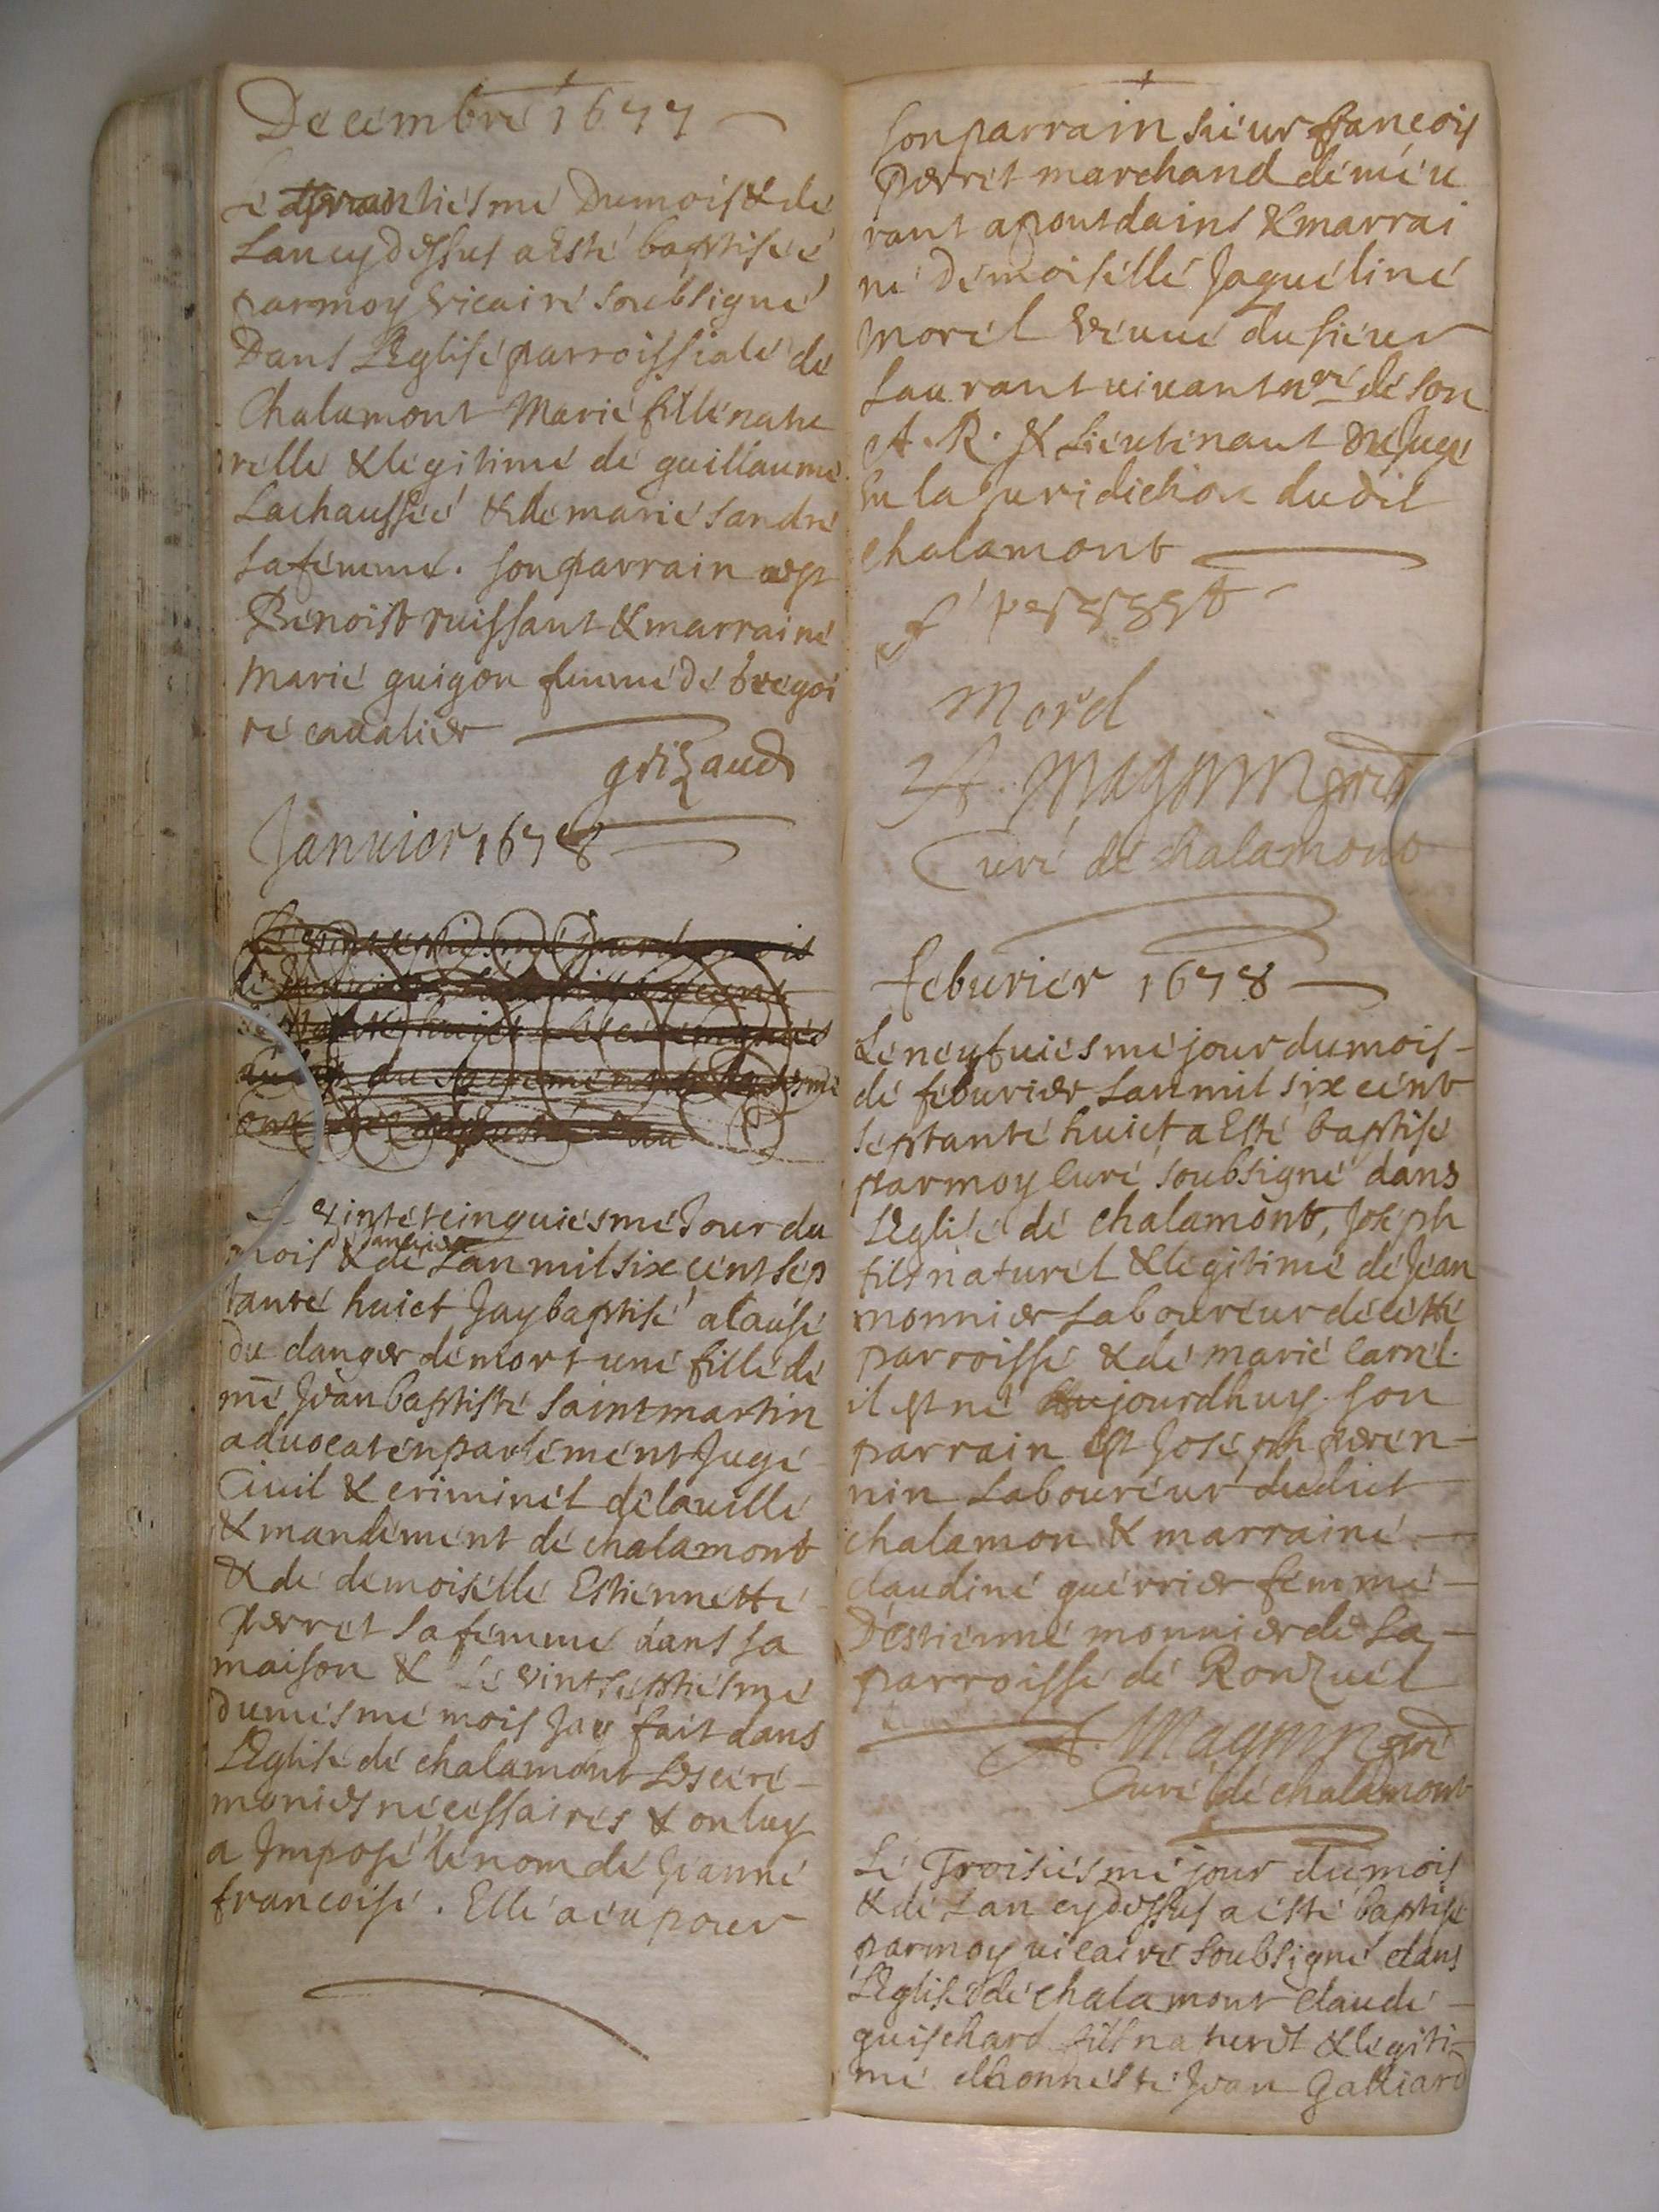 Decembre 1677
Le trantiesme Dumois & de
Lan cy dessus a Esté baptiseé
par moy vicaire soubsigné
Dans L'Eglise parroissiale de
Chalamont Marie fille natu
relle & legitime de guillaume
Lachausseé & de marie sandre
sa femme. son parrain est
Benoist ruissant & marraine
Marie guigon femme de gregoi
re cavalier
grizaud
Janvier 1678
Le vinteteinquiesme Jour du
mois & de Janvier Lan mil six cent sep
tante huict Jay baptisé a cause
du danger de mort une fille de
me Jean baptiste saint martin
advocat en parlement Juge
Civil & criminel de la ville
& mandement de chalamont
& de demoiselle Estiennette
perret sa femme dans sa
maison & Le vintseptiesme
du mesme mois Jay fait dans
L'Eglise de chalamont Les cere-
monies necessaires & on luy
a Imposé le nom de Jeanne
francoise. Elle a eu pour
son parrain sieur francois
perret marchand demeu
rant a pont dains & marrai
ne Demoiselle Jaqueline
morel veuue du sieur
Laurant vivant nre de son
A. R. & Lieutenant de Juge
En la juridiction dudit
chalamont
f perret
Morel
A. Magnin pre
Curé de chalamont
feburier 1678
Le neufuiesme jour du mois -
de feburier Lan mil six cent
septante huict a Esté baptisé
par moy curé soubsigné dans
L'Eglise de chalamont, Joseph
fils naturel & legitime de Jean
monnier Laboureur de cette
parroisse & de marie carrel.
il est né aujourdhuy. son
parrain est Joseph peren-
nin Laboureur dudict
chalamon & marraine -
claudine guerrier femme -
D'estienne monnier de La -
parroisse de Ronzuel
A. Magnin pre
Curé de chalamont
Le Troisiesme jour du mois
& de Lan cy dessus a esté baptisé
par moy vicaire soubsigné dans
L'Eglise de chalamont claude -
guischard fils naturel & legiti-
me d'honneste Jean Galliard